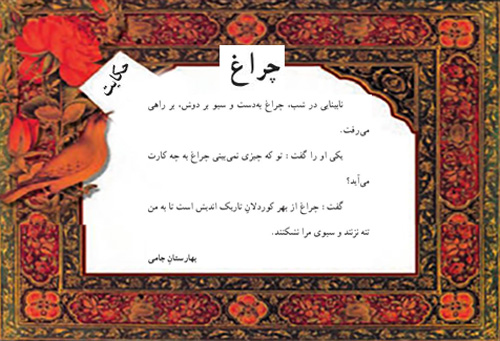 حکایت
چراغ
نابینایی در شب، چراغ به‌دست و سبو بر دوش، بر راهی
می‌رفت.
یکی او را گفت : تو که چیزی نمی‌بینی چراغ به چه کارت
می‌آید؟
گفت : چراغ از بهر کوردلانِ تاریک اندیش است تا به من
تنه نزنند و سبوی مرا نشکنند.
بهارستانِ جامی